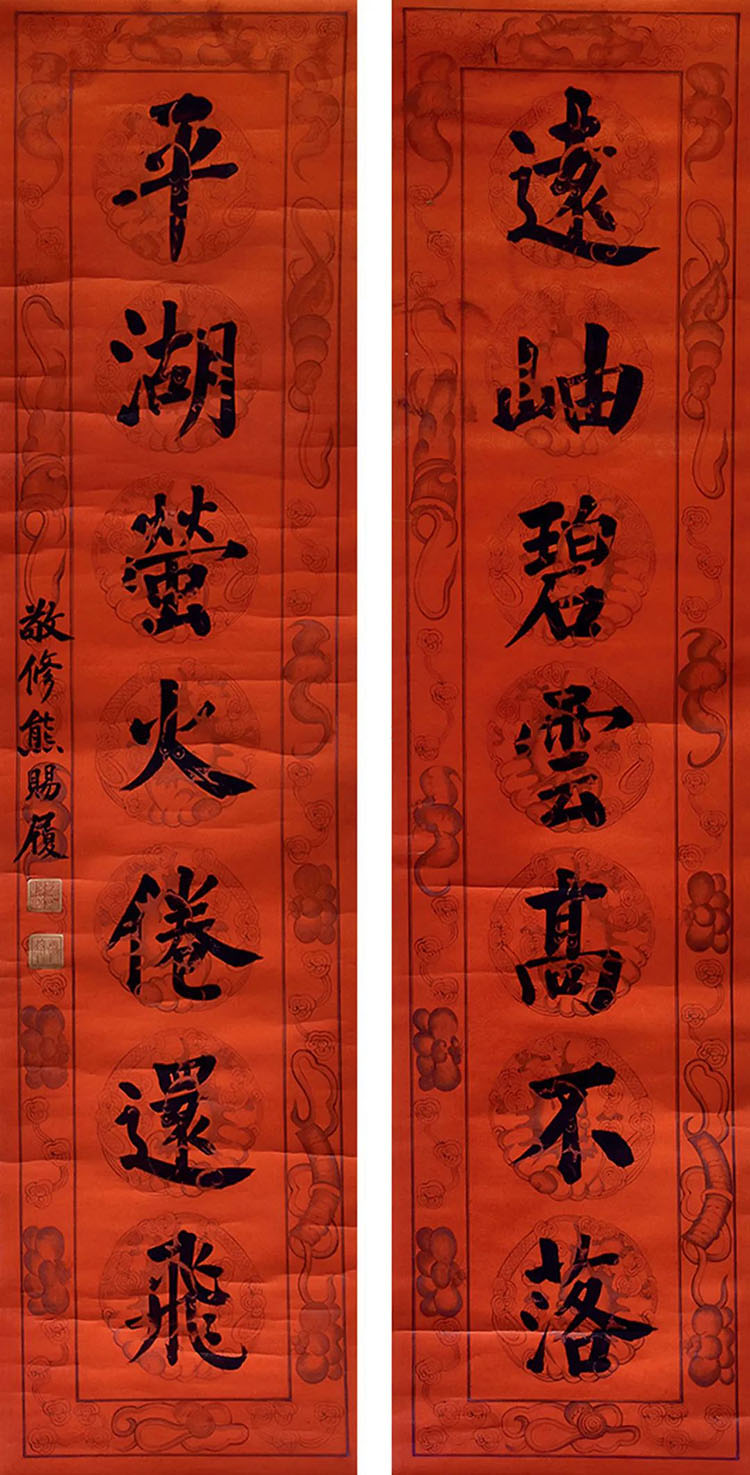 遠岫碧雲高不落
平湖螢火倦還飛
敬修熊賜履